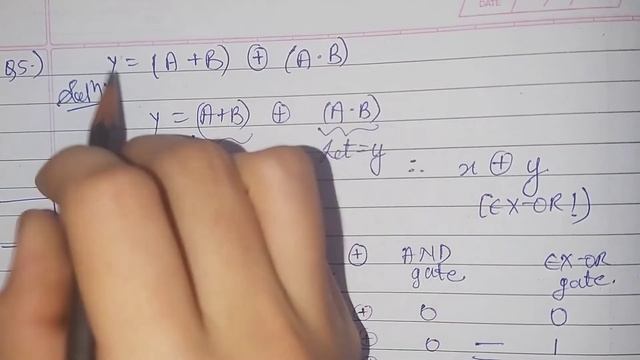 DATE
Q5.) y = (A + B) ⊕ (A · B)
Soln:
y = (A+B) ⊕ (A · B)
Let = y ∴ x ⊕ y
(EX-OR!)
⊕ AND gate EX-OR gate.
⊕ 0 0
⊕ 0 = 1